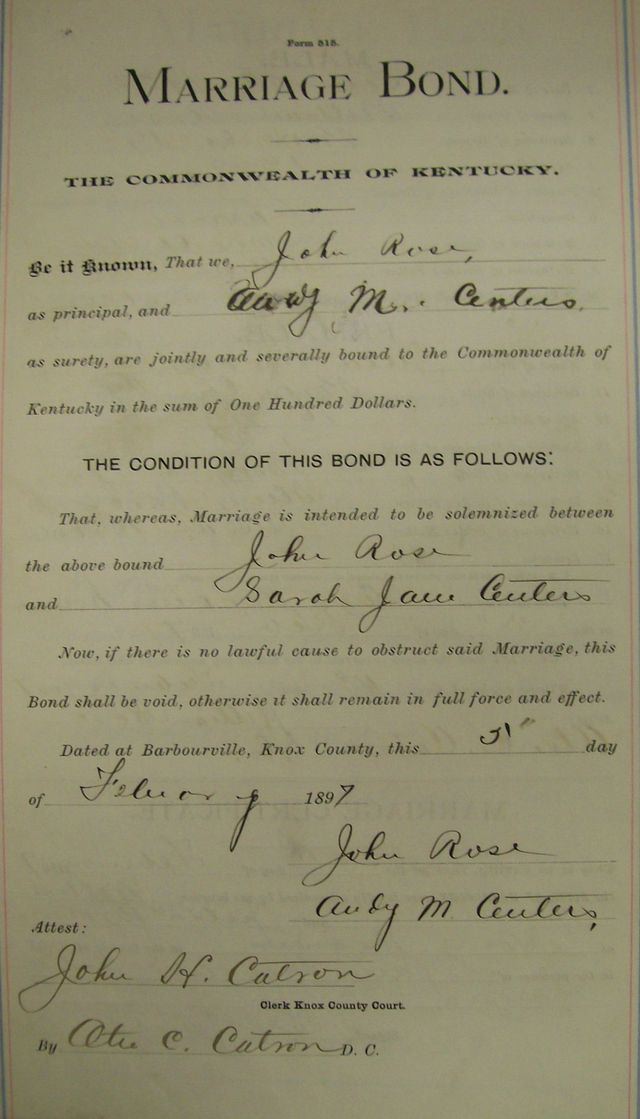 Form 515.
MARRIAGE BOND.
THE COMMONWEALTH OF KENTUCKY.
Be it Known, That we, John Rose,
as principal, and Andy M. Centers,
as surety, are jointly and severally bound to the Commonwealth of
Kentucky in the sum of One Hundred Dollars.
THE CONDITION OF THIS BOND IS AS FOLLOWS:
That, whereas, Marriage is intended to be solemnized between
the above bound John Rose
and Sarah Jane Centers
Now, if there is no lawful cause to obstruct said Marriage, this
Bond shall be void, otherwise it shall remain in full force and effect.
Dated at Barbourville, Knox County, this 5" day
of February 1897
John Rose
Andy M Centers,
Attest:
John H. Catron
Clerk Knox County Court.
By C. Catron D. C.